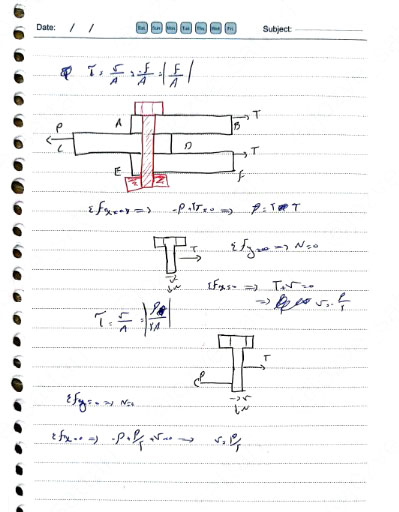 Date: / / Sat Sun Mon Tue Wed Thu Fri Subject:
τ = v/A = F/A = |F/A|
A B T
P C D T
E F
Σfx=0 ⇒ -P+2T=0 ⇒ P=2T
T Σfy=0 ⇒ N=0
v N
Σfx=0 ⇒ T+v=0
⇒ v=-P/2
τ = v/A = |P/2A|
P C T
v N
Σfy=0 ⇒ N=0
Σfx=0 ⇒ -P+P/2+v=0 → v=P/2